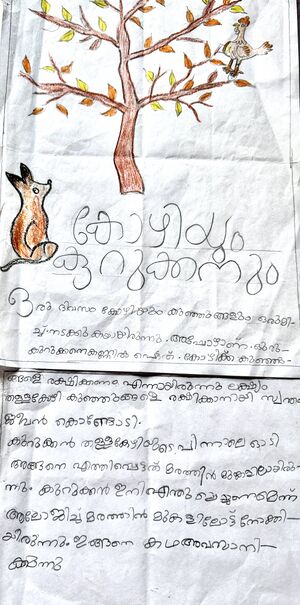 കോഴിയും
കുറുക്കനും
ഒരു ദിവസം കോഴിയും കുഞ്ഞുങ്ങളും
നടക്കുകയായിരുന്നു. അപ്പോഴാണ് ഒരു
കുറുക്കനെ കണ്ണിൽ പെട്ടത്. കോഴിക്ക് കുഞ്ഞു-
ങ്ങളെ രക്ഷിക്കണം എന്നായിരുന്നു ലക്ഷ്യം
തള്ളകോഴി കുഞ്ഞുങ്ങളെ രക്ഷിക്കാനായി സ്വന്തം
ജീവൻ കൊണ്ടോടി.
കുറുക്കൻ തള്ളകോഴിയുടെ പിന്നാലെ ഓടി
അങ്ങനെ എത്തിപ്പെട്ടത് മരത്തിൻ മുകളിലായിരു
ന്നു. കുറുക്കൻ ഇനി എന്തു ചെയ്യണമെന്ന്
ആലോജിച്ച് മരത്തിൻ മുകളിലോട്ട് നോക്കി-
യിരുന്നു. ഇങ്ങനെ കഥ അവസാനി-
ക്കുന്നു